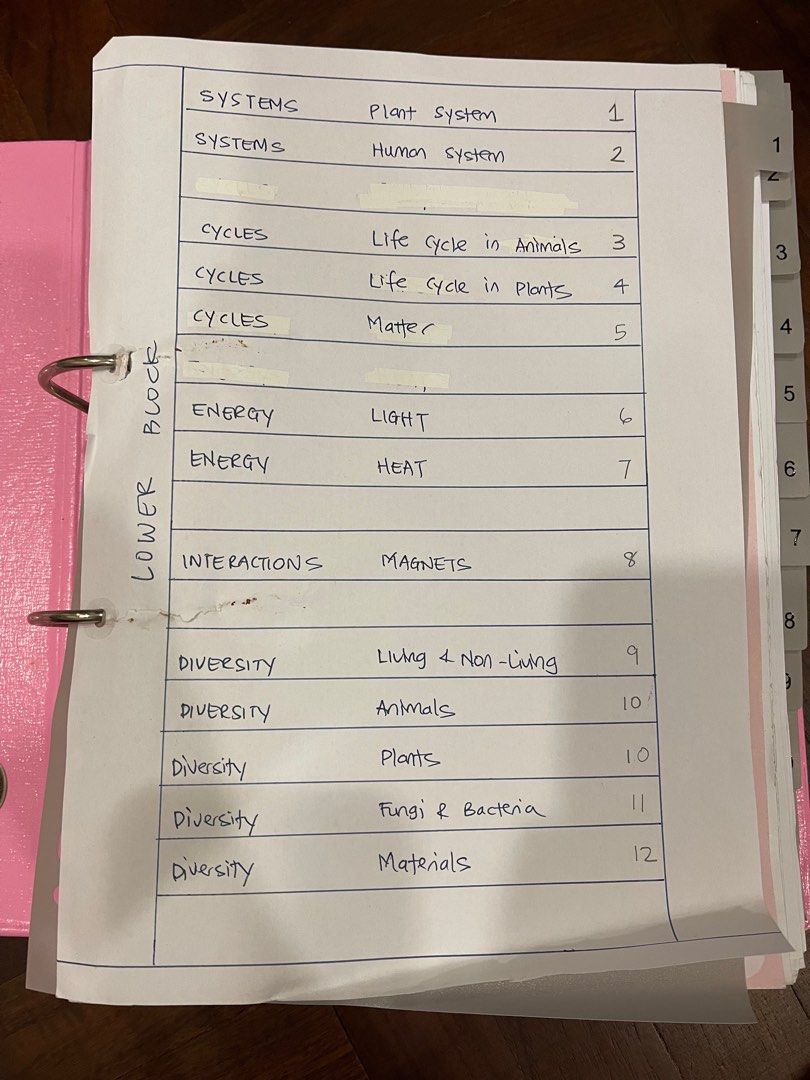 SYSTEMS Plant System 1
SYSTEMS Human System 2
CYCLES Life Cycle in Animals 3
CYCLES Life Cycle in Plants 4
CYCLES Matter 5
ENERGY LIGHT 6
ENERGY HEAT 7
INTERACTIONS MAGNETS 8
DIVERSITY Living & Non-Living 9
DIVERSITY Animals 10
Diversity Plants 10
Diversity Fungi & Bacteria 11
Diversity Materials 12
LOWER BLOCK
1
2
3
4
5
6
7
8
9